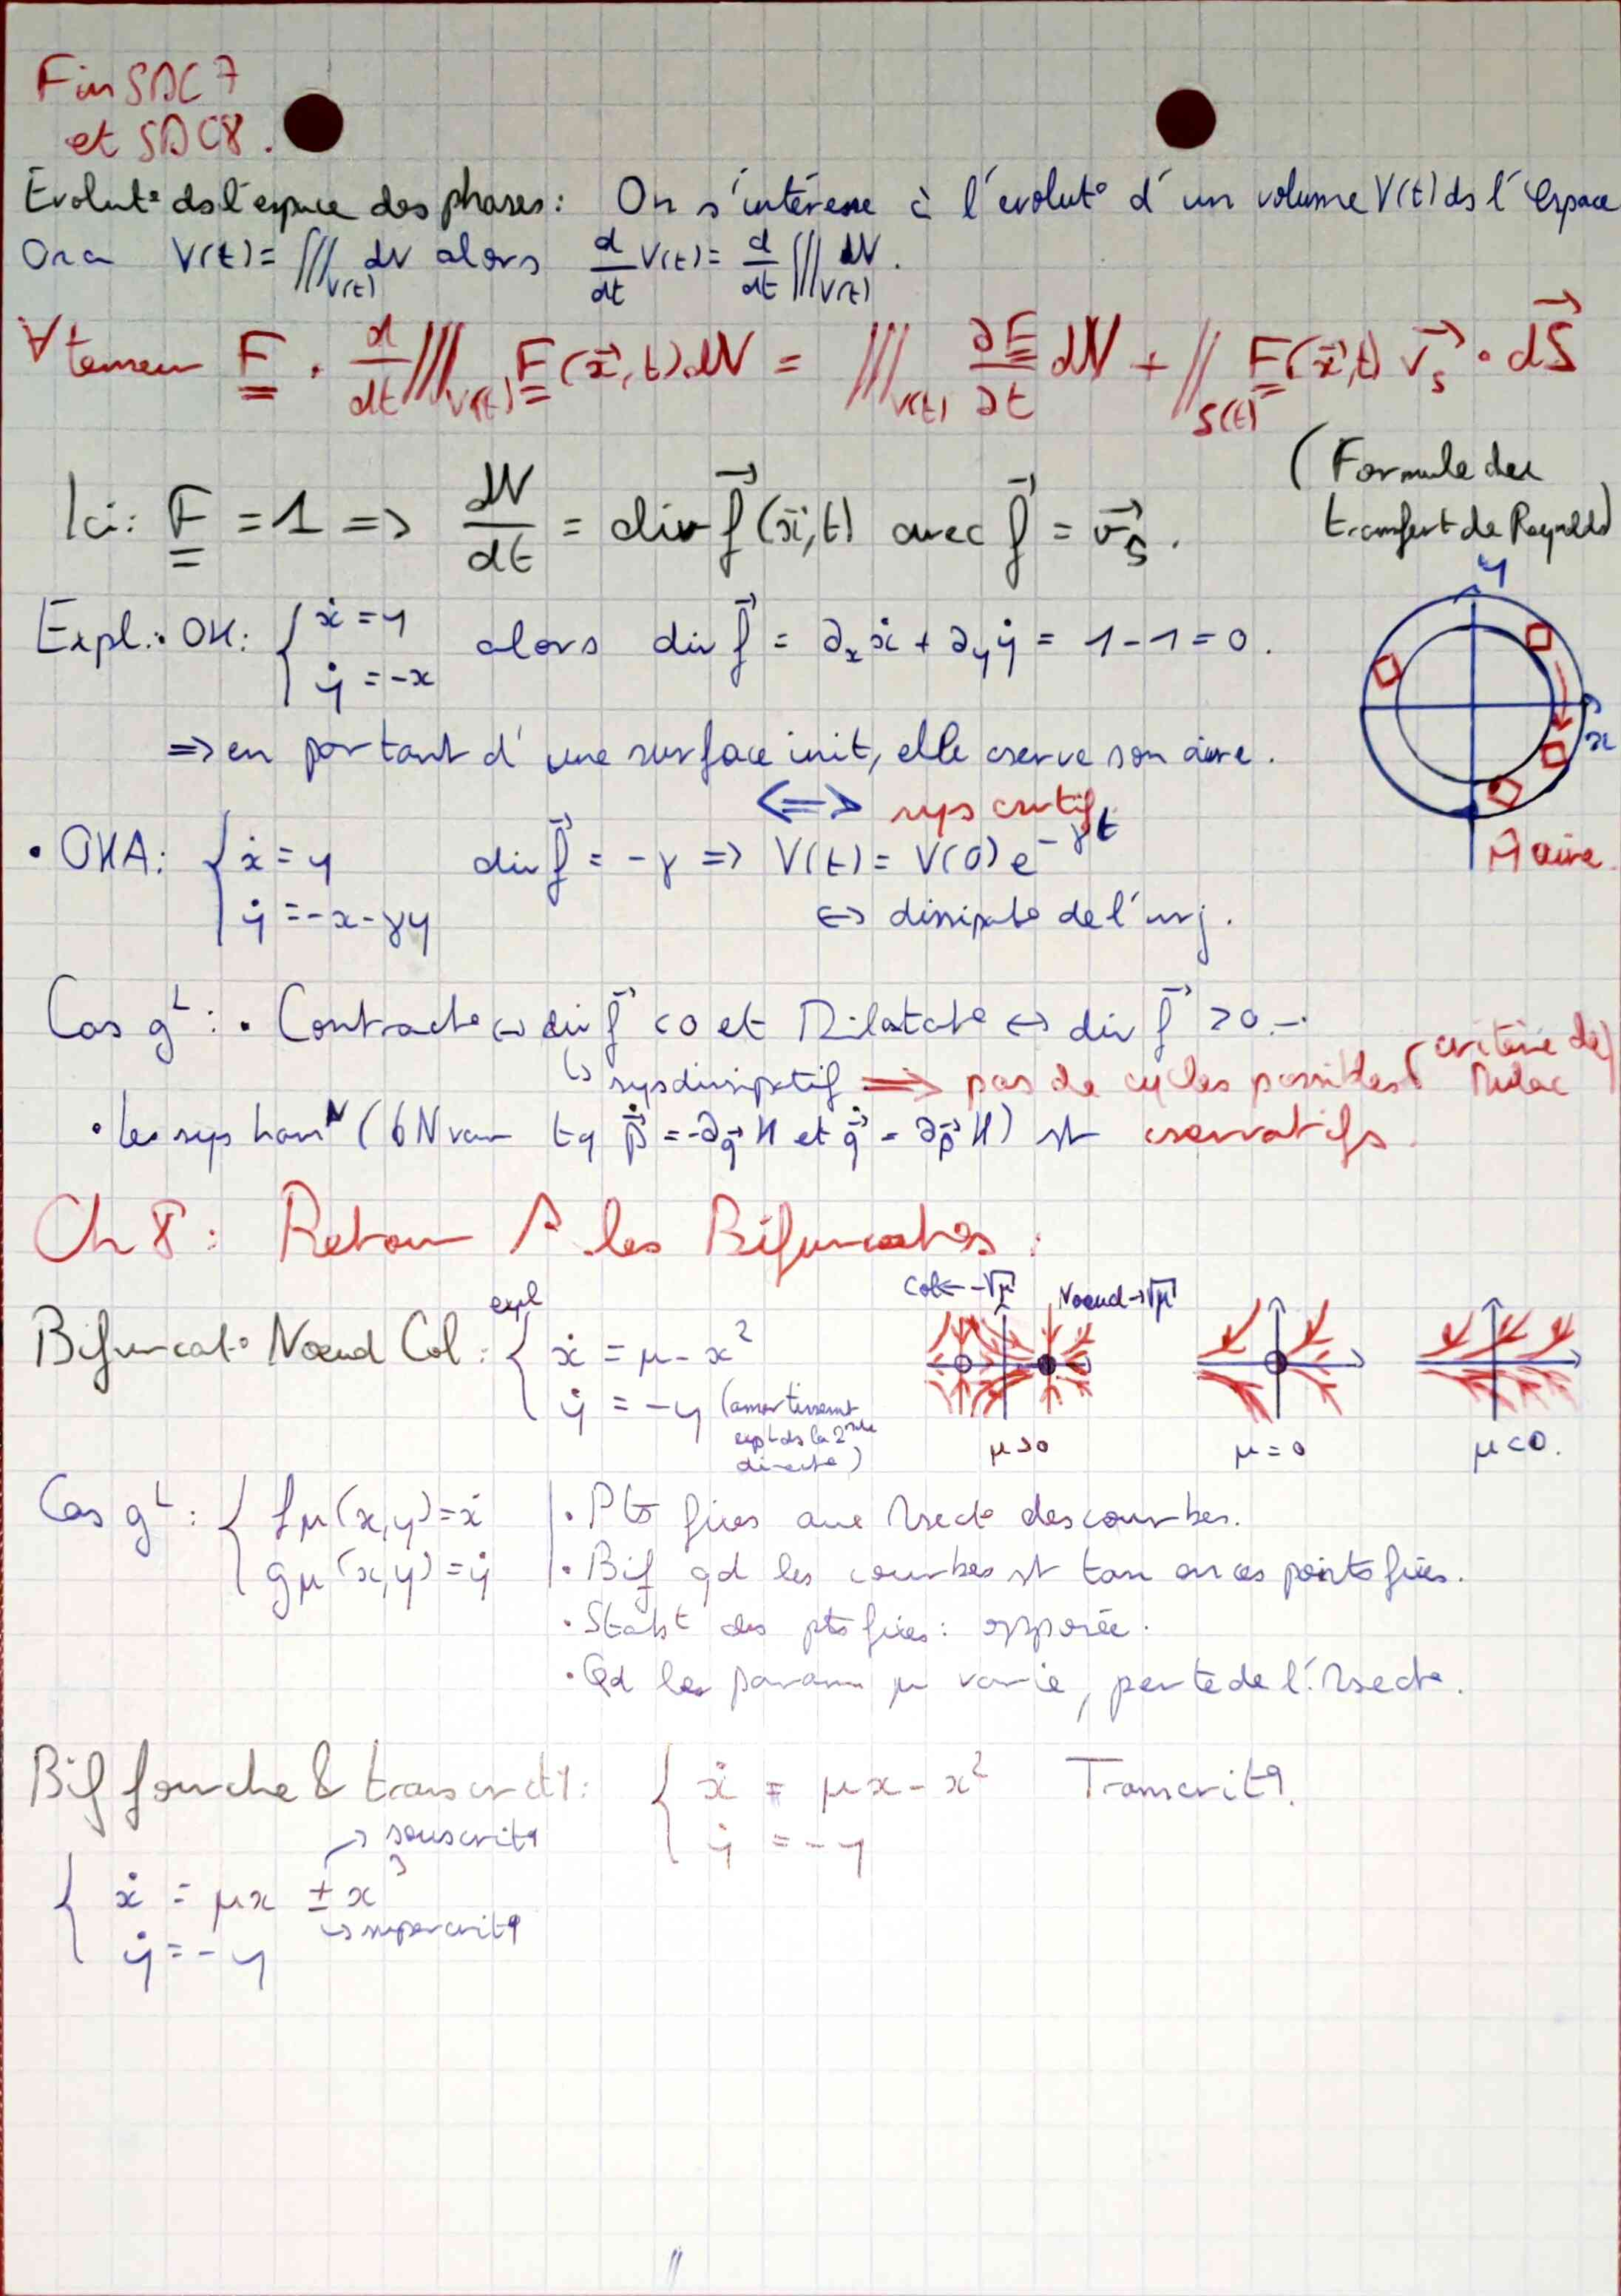 Fin SDC 7
et SDC8.
Evolut° ds l'espace des phases: On s'intéresse à l'évolut° d'un volume V(t) ds l'espace
On a V(t) = ∭_V(t) dV alors d/dt V(t) = d/dt ∭_V(t) dV.
∀ tenseur F̳ . d/dt ∭_V(t) F̳(x⃗,t).dV = ∭_V(t) ∂F̳/∂t dV + ∬_S(t) F̳(x⃗,t) v⃗_s • dS⃗
(Formule du
transfert de Reynolds)
Ici: F̳ = 1 => dV/dt = div f⃗(x⃗,t) avec f⃗ = v⃗_s.
y
Expl.: • OH: { ẋ = y
ẏ = -x
alors div f⃗ = ∂_x ẋ + ∂_y ẏ = 1 - 1 = 0.
x
=> en partant d'une surface init, elle cserve son aire.
<=> sys csvtif
m̂ aire.
• OHA: { ẋ = y
ẏ = -x - γy
div f⃗ = -γ => V(t) = V(0) e^-γt
<-> dissipat° de l'nrj.
Cas gL: • Contract° <-> div f⃗ < 0 et Dilatat° <-> div f⃗ > 0.
↳ sys dissipatif => pas de cycles possibles (critère de
Dulac)
• les sys ham^N (6N var tq p⃗̇ = -∂_q⃗ H et q⃗̇ = ∂_p⃗ H) st cservatifs.
Ch 8: Retour les Bifurcat°s:
Bifurcat° Noeud Col: expl { ẋ = μ - x²
ẏ = -y (amortissemt
expL ds la 2nde
direct°)
Col <- -√μ Noeud -> √μ
μ>0 μ=0 μ<0.
Cas gL: { fμ(x,y) = ẋ
gμ(x,y) = ẏ
• Pts fixes aux ∩sect° des courbes.
• Bif qd les courbes st tan en ces points fixes.
• Stabt des pts fixes: opposée.
• Qd les param μ varie, perte de l'∩sect°.
Bif fourche & transcrtq: { ẋ = μx - x² Transcritq.
ẏ = -y
-> souscritq
{ ẋ = μx ± x³
↳ supercritq
ẏ = -y